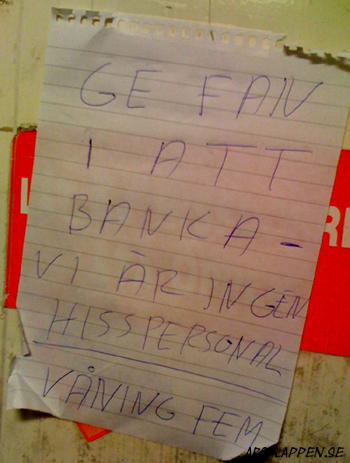 GE FAN
I ATT
BANKA-
VI ÄR INGEN
HISSPERSONAL
VÅNING FEM
ARGALAPPEN.SE